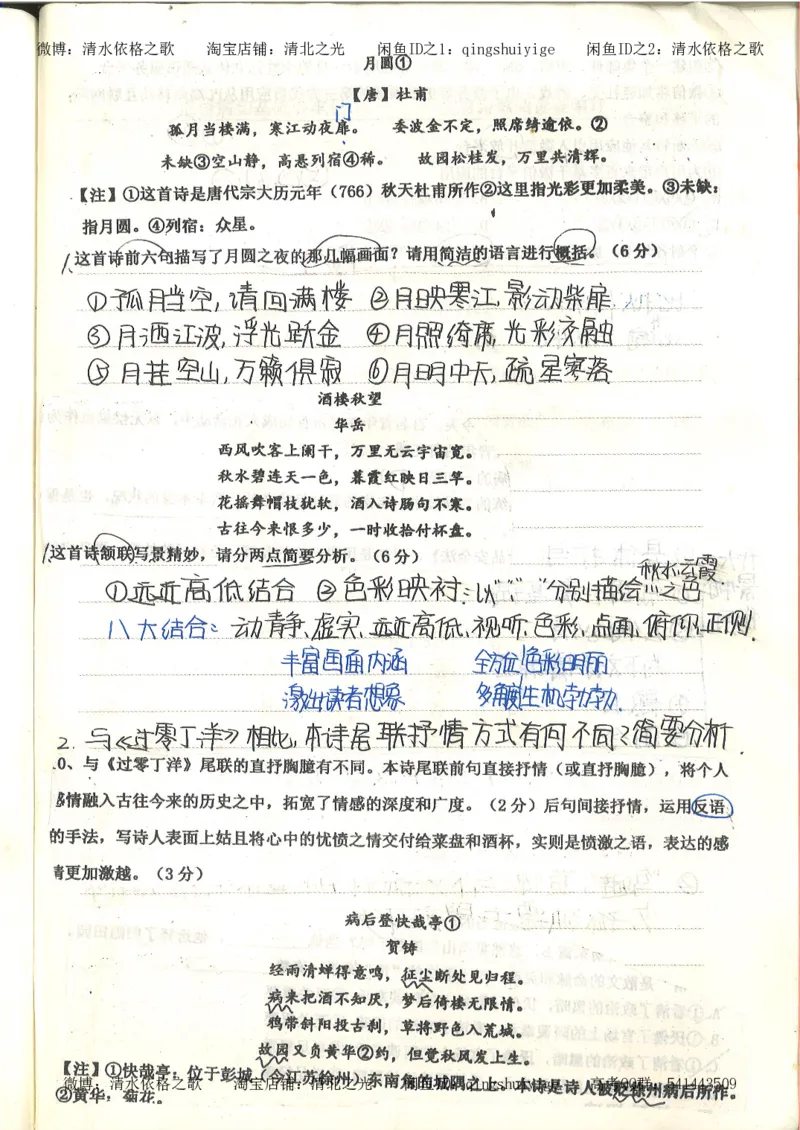 微博：清水依格之歌 淘宝店铺：清北之光 闲鱼ID之1：qingshuiyige 闲鱼ID之2：清水依格之歌
月圆①
【唐】杜甫
门
孤月当楼满，寒江动夜扉。 委波金不定，照席绮逾依。②
未缺③空山静，高悬列宿④稀。 故园松桂发，万里共清辉。
【注】①这首诗是唐代宗大历元年（766）秋天杜甫所作②这里指光彩更加柔美。③未缺：
指月圆。④列宿：众星。
1.这首诗前六句描写了月圆之夜的那几幅画面？请用简洁的语言进行概括。（6分）
①孤月当空,清回满楼 ②月映寒江,影动柴扉
③月洒江波,浮光跃金 ④月照绮席,光彩交融
⑤月挂空山,万籁俱寂 ⑥月明中天,疏星零落
酒楼秋望
华岳
西风吹客上阑干，万里无云宇宙宽。
秋水碧连天一色，暮霞红映日三竿。
花摇舞帽枝犹软，酒入诗肠句不寒。
古往今来恨多少，一时收拾付杯盘。
1.这首诗颔联写景精妙，请分两点简要分析。（6分）
秋水云霞
①远近高低结合 ②色彩映衬:以“”“”分别描绘…之色
八大结合:动静、虚实、远近高低、视听、色彩、点面、俯仰、正侧.
丰富画面内涵 全方位 色彩明丽
激出读者想象 多角度 生机勃勃.
2. 与《过零丁洋》相比,本诗尾联抒情方式有何不同?简要分析
0、与《过零丁洋》尾联的直抒胸臆有不同。本诗尾联前句直接抒情（或直抒胸臆），将个人
情融入古往今来的历史之中，拓宽了情感的深度和广度。（2分）后句间接抒情，运用反语
的手法，写诗人表面上姑且将心中的忧愤之情交付给菜盘和酒杯，实则是愤激之语，表达的感
情更加激越。（3分）
病后登快哉亭①
贺铸
经雨清蝉得意鸣，征尘断处见归程。
病来把酒不知厌，梦后倚楼无限情。
鸦带斜阳投古刹，草将野色入荒城。
故园又负黄华②约，但觉秋风发上生。
【注】①快哉亭：位于彭城（今江苏徐州）东南角的城隅之上。本诗是诗人被贬徐州病后所作。
微博：清水依格之歌 淘宝店铺：清北之光 高考QQ群：541443509
②黄华：菊花。